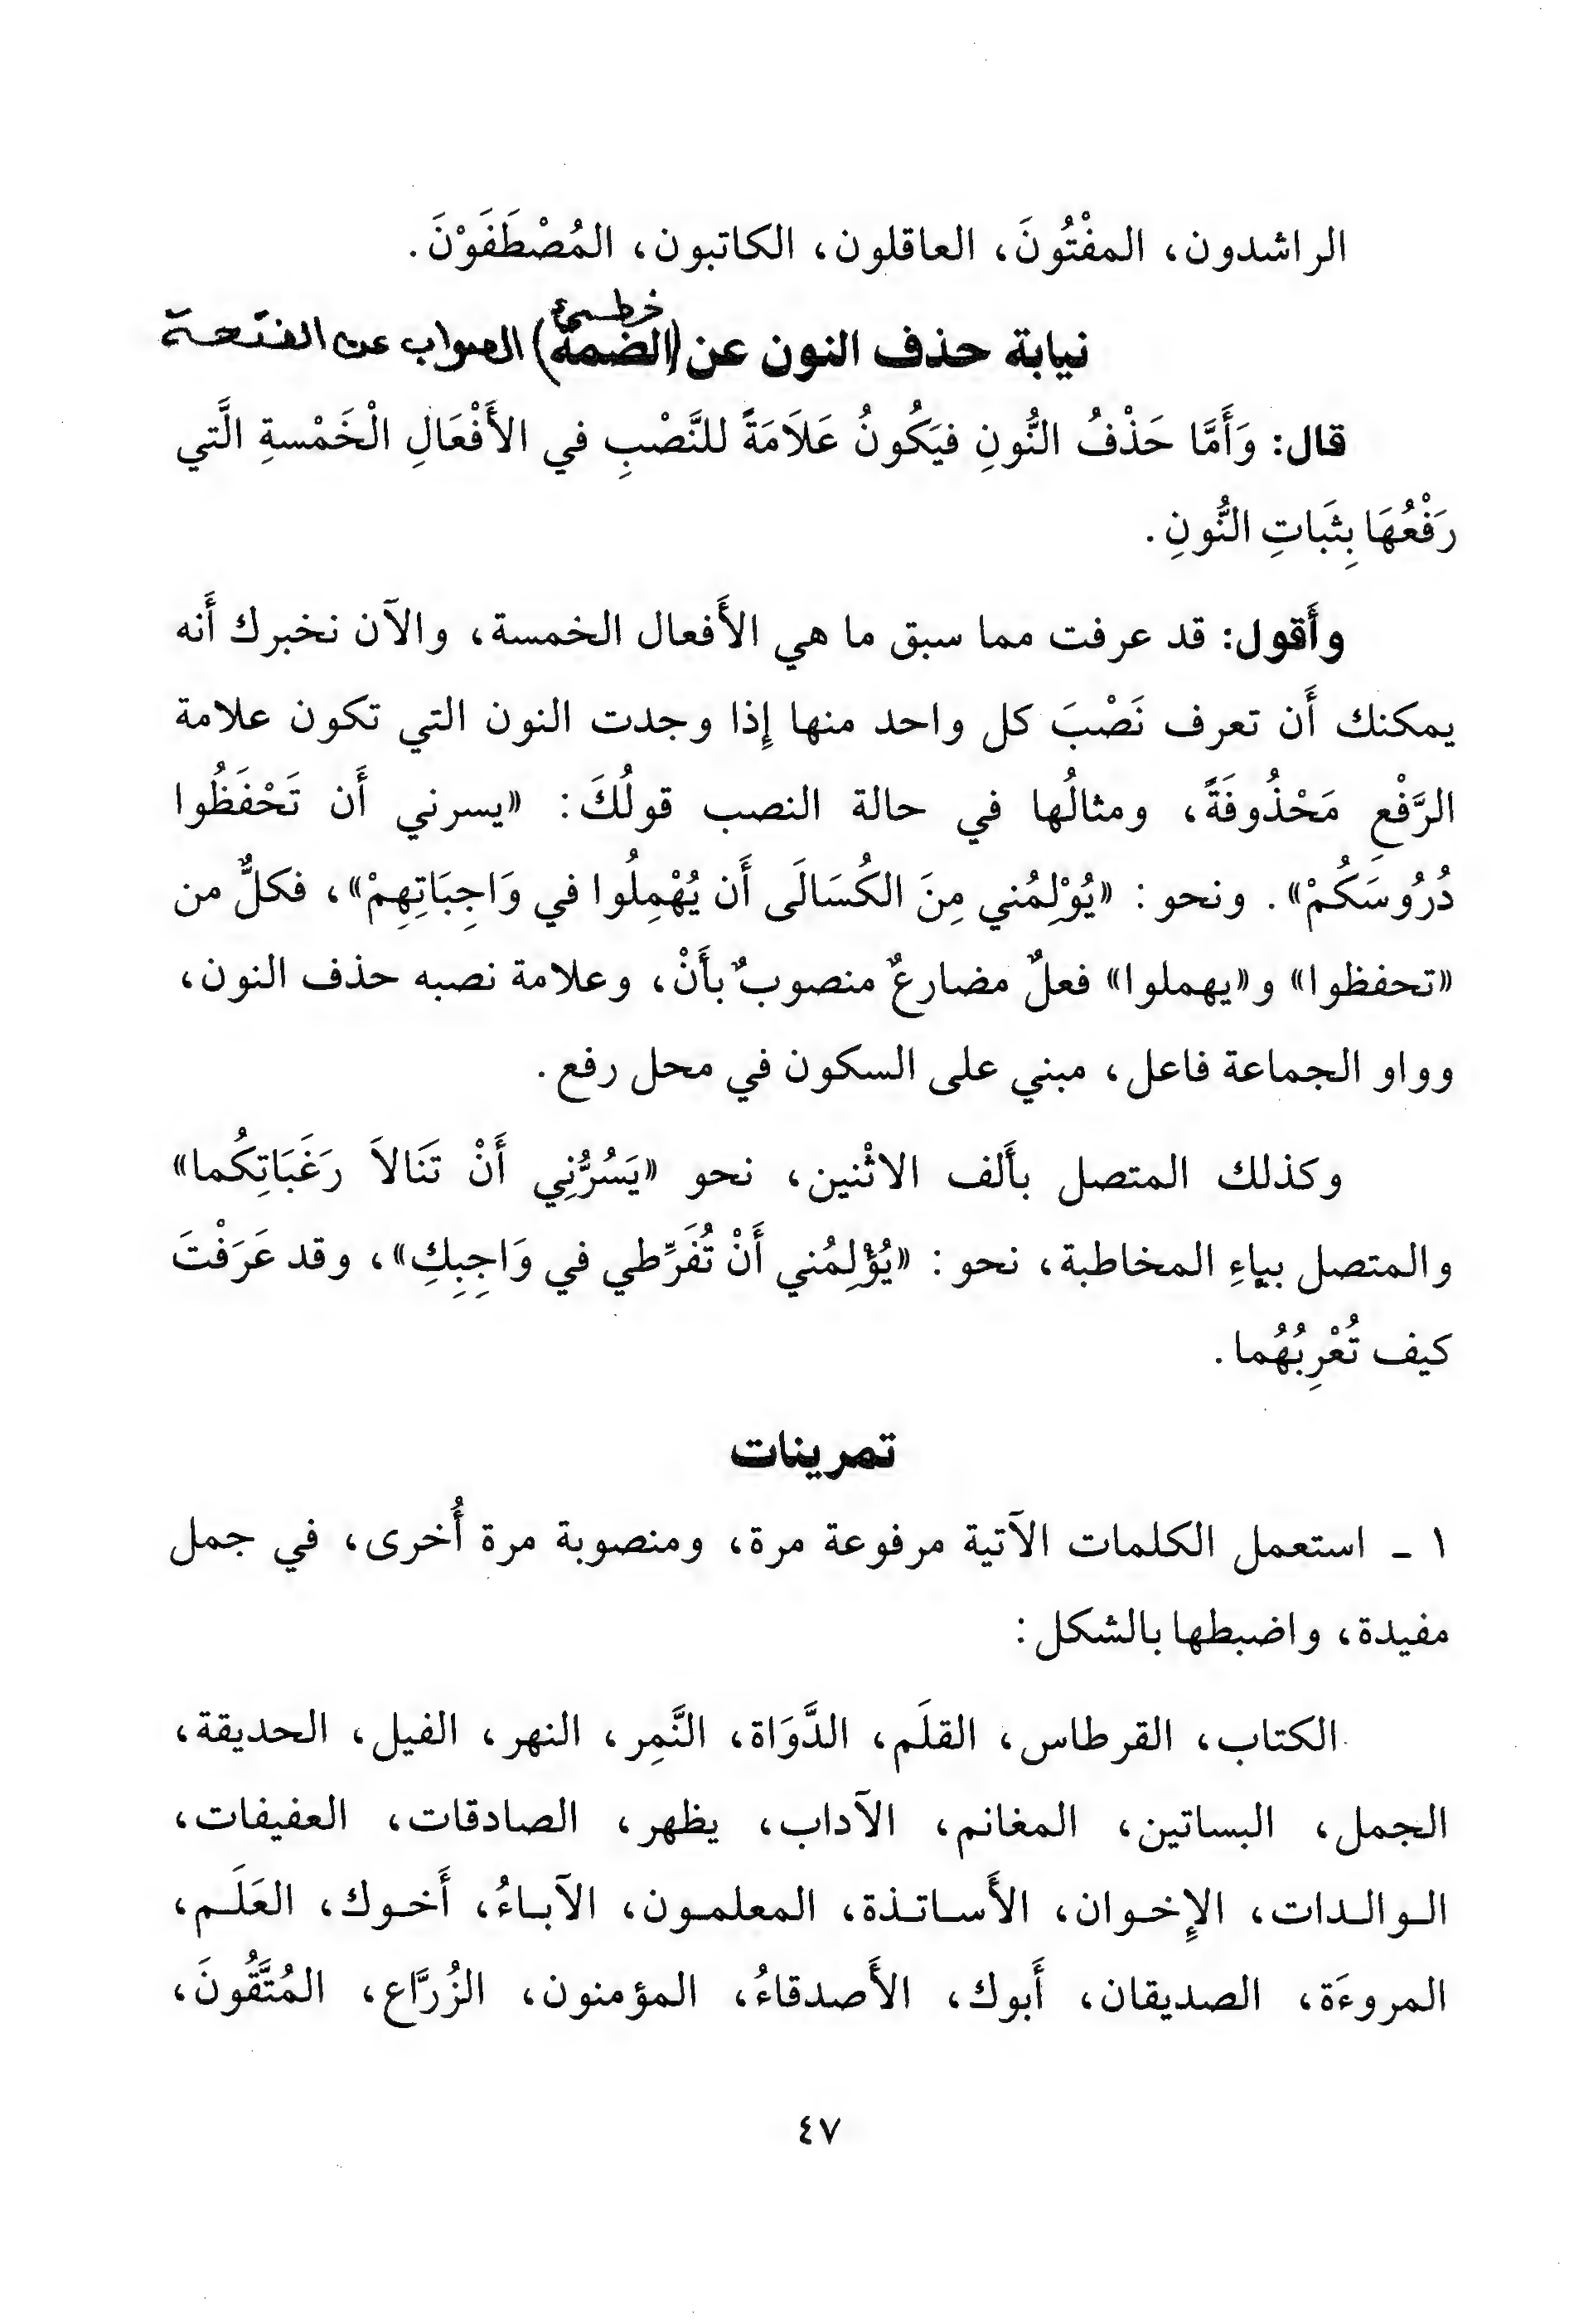 الراشدون، المفْتُونَ، العاقلون، الكاتبون، المُصْطَفَوْنَ.
خطأ
نيابة حذف النون عن (الضمة) الصواب عن الفتحة
قال: وَأَمَّا حَذْفُ النُّونِ فيَكُونُ عَلاَمَةً للنَّصْبِ في الأَفْعَالِ الْخَمْسةِ الَّتي
رَفْعُهَا بِثَباتِ النُّونِ.
وأَقول: قد عرفت مما سبق ما هي الأَفعال الخمسة، والآن نخبرك أَنه
يمكنك أَن تعرف نَصْبَ كل واحد منها إِذا وجدت النون التي تكون علامة
الرَّفْعِ مَحْذُوفَةً، ومثالُها في حالة النصب قولُكَ: «يسرني أَن تَحْفَظُوا
دُرُوسَكُمْ». ونحو: «يُوْلِمُني مِنَ الكُسَالَى أَن يُهْمِلُوا في وَاجِبَاتِهِمْ»، فكلٌّ من
«تحفظوا» و«يهملوا» فعلٌ مضارعٌ منصوبٌ بأَنْ، وعلامة نصبه حذف النون،
وواو الجماعة فاعل، مبني على السكون في محل رفع.
وكذلك المتصل بأَلف الاثْنين، نحو «يَسُرُّنِي أَنْ تَنَالاَ رَغَبَاتِكُما»
والمتصل بياءِ المخاطبة، نحو: «يُؤْلِمُني أَنْ تُفَرِّطي في وَاجِبِكِ»، وقد عَرَفْتَ
كيف تُعْرِبُهُما.
تمرينات
١ - استعمل الكلمات الآتية مرفوعة مرة، ومنصوبة مرة أُخرى، في جمل
مفيدة، واضبطها بالشكل:
الكتاب، القرطاس، القلَم، الدَّوَاة، النَّمِر، النهر، الفيل، الحديقة،
الجمل، البساتين، المغانم، الآداب، يظهر، الصادقات، العفيفات،
الوالدات، الإِخوان، الأَساتذة، المعلمون، الآباءُ، أَخوك، العَلَم،
المروءَة، الصديقان، أَبوك، الأَصدقاءُ، المؤمنون، الزُرَّاع، المُتَّقُونَ،
٤٧